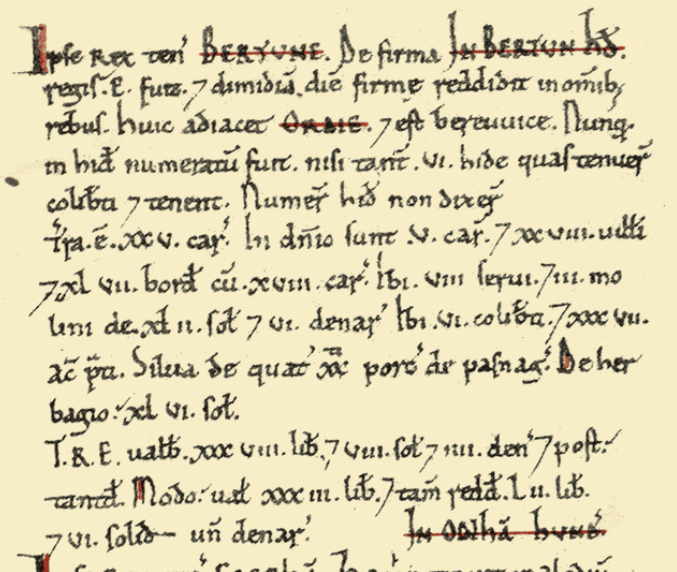 Ipse Rex ten̄ BERTVNE. De firma IN BERTVN HD̄.
regis.E. fuit. ⁊ dimidiā die firme reddidit in omib;
reb̄us. huic adiacet ORDIE. ⁊ est bereuuice. Nunq̄
in hid̄ numeratū fuit. nisi tant̄. vi. hide quas tenuer̄
colib̄ti ⁊ tenent. Numer̄ hid̄ non dixer̄
T̄ra.ē.xxv. car̄. In dn̄io sunt .v. car̄. ⁊ xxviii. uilłi
⁊ xl vii. bord̄ cū. xviii. car̄. Ibi. viii serui. ⁊ iii. mo
lini de. xl ii. sol̄ ⁊ vi. denar̄ Ibi. vi. colib̄ti. ⁊ xxx vii.
ac̄ p̄ti. Silua de quat̄ xx porc̄ de pasnaḡ. De her
bagio: xl vi. sol̄.
T.R.E. ualb̄. xxx viii. lib̄. ⁊ viii. sol̄ ⁊ iiii. den̄ ⁊ post:
tantd̄. Modo: ual̄ xxx iii. lib̄. ⁊ tam̄ redd̄. L ii. lib̄.
⁊ vi. solid un̄ denar̄. IN ODIHĀ HUND̄